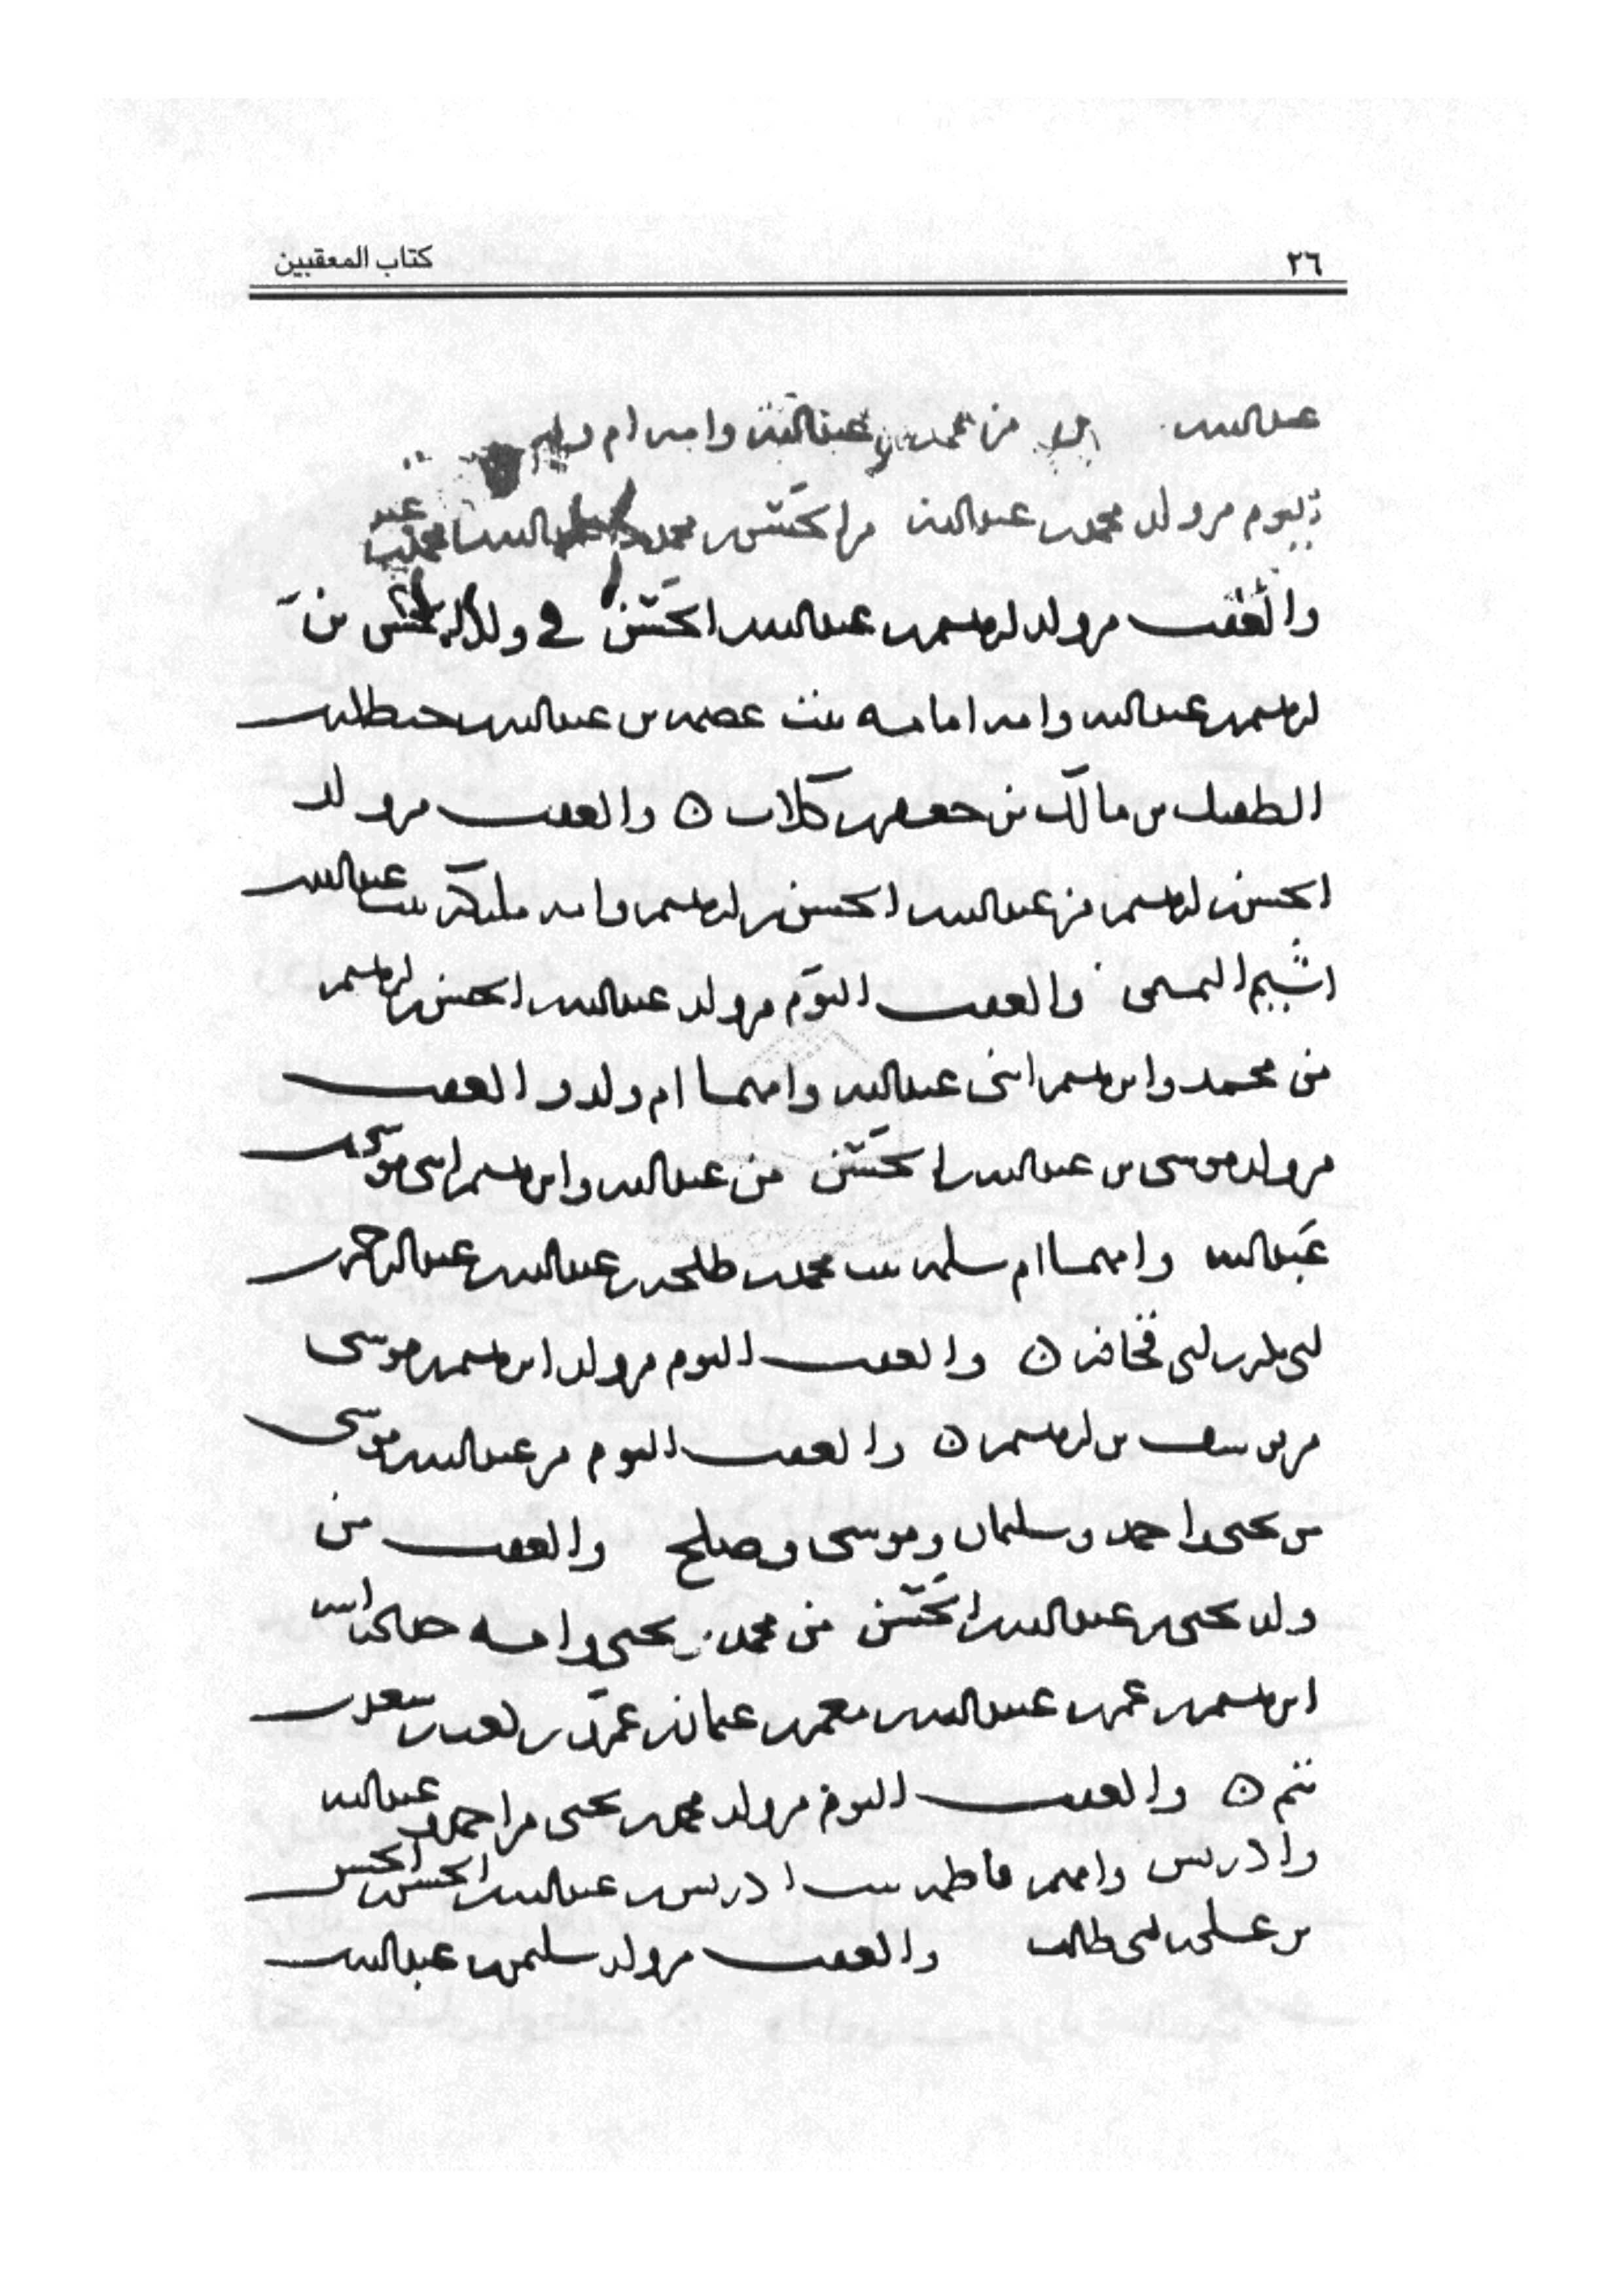 ٢٦ كتاب المعقبين
عبدالله من محمد بن عبدالله وامه ام
اليوم من ولد محمد بن عبدالله من الحسن بن محمد
والعقب من ولد ابرهيم بن عبدالله بن الحسن في ولد الحسن بن
ابرهيم بن عبدالله وامه امامه بنت عصمه بن عبدالله بن حنظله بن
الطفيل بن مالك بن جعفر بن كلاب ن والعقب من ولد
الحسن بن ابرهيم من عبدالله بن الحسن بن ابرهيم وامه مليكة بنت عبدالله بن
اشيم التميمى والعقب اليوم من ولد عبدالله بن الحسن بن ابرهيم
من محمد وابرهيم ابنى عبدالله وامهما ام ولد والعقب
من ولد موسى بن عبدالله بن الحسن من عبدالله وابرهيم ابنى موسى بن
عبدالله وامهما ام سلمه بنت محمد بن طلحه بن عبدالله بن عبدالرحمن بن
ابى بكر بن ابى قحافه ن والعقب اليوم من ولد ابرهيم بن موسى
من يوسف بن ابرهيم ن والعقب اليوم من عبدالله بن موسى
من يحيى واحمد وسليمان وموسى وصلح والعقب من
ولد يحيى بن عبدالله بن الحسن من محمد بن يحيى وامه خديجه ابنه
ابرهيم بن عمر بن عبيدالله بن معمر بن عثمان بن عمرو بن كعب بن سعد بن
تيم ن والعقب اليوم من ولد محمد بن يحيى من احمد وعبدالله
وادريس وامهم فاطمه بنت ادريس بن عبدالله بن الحسن بن الحسن
بن على بن ابى طالب والعقب من ولد سليمن بن عبدالله